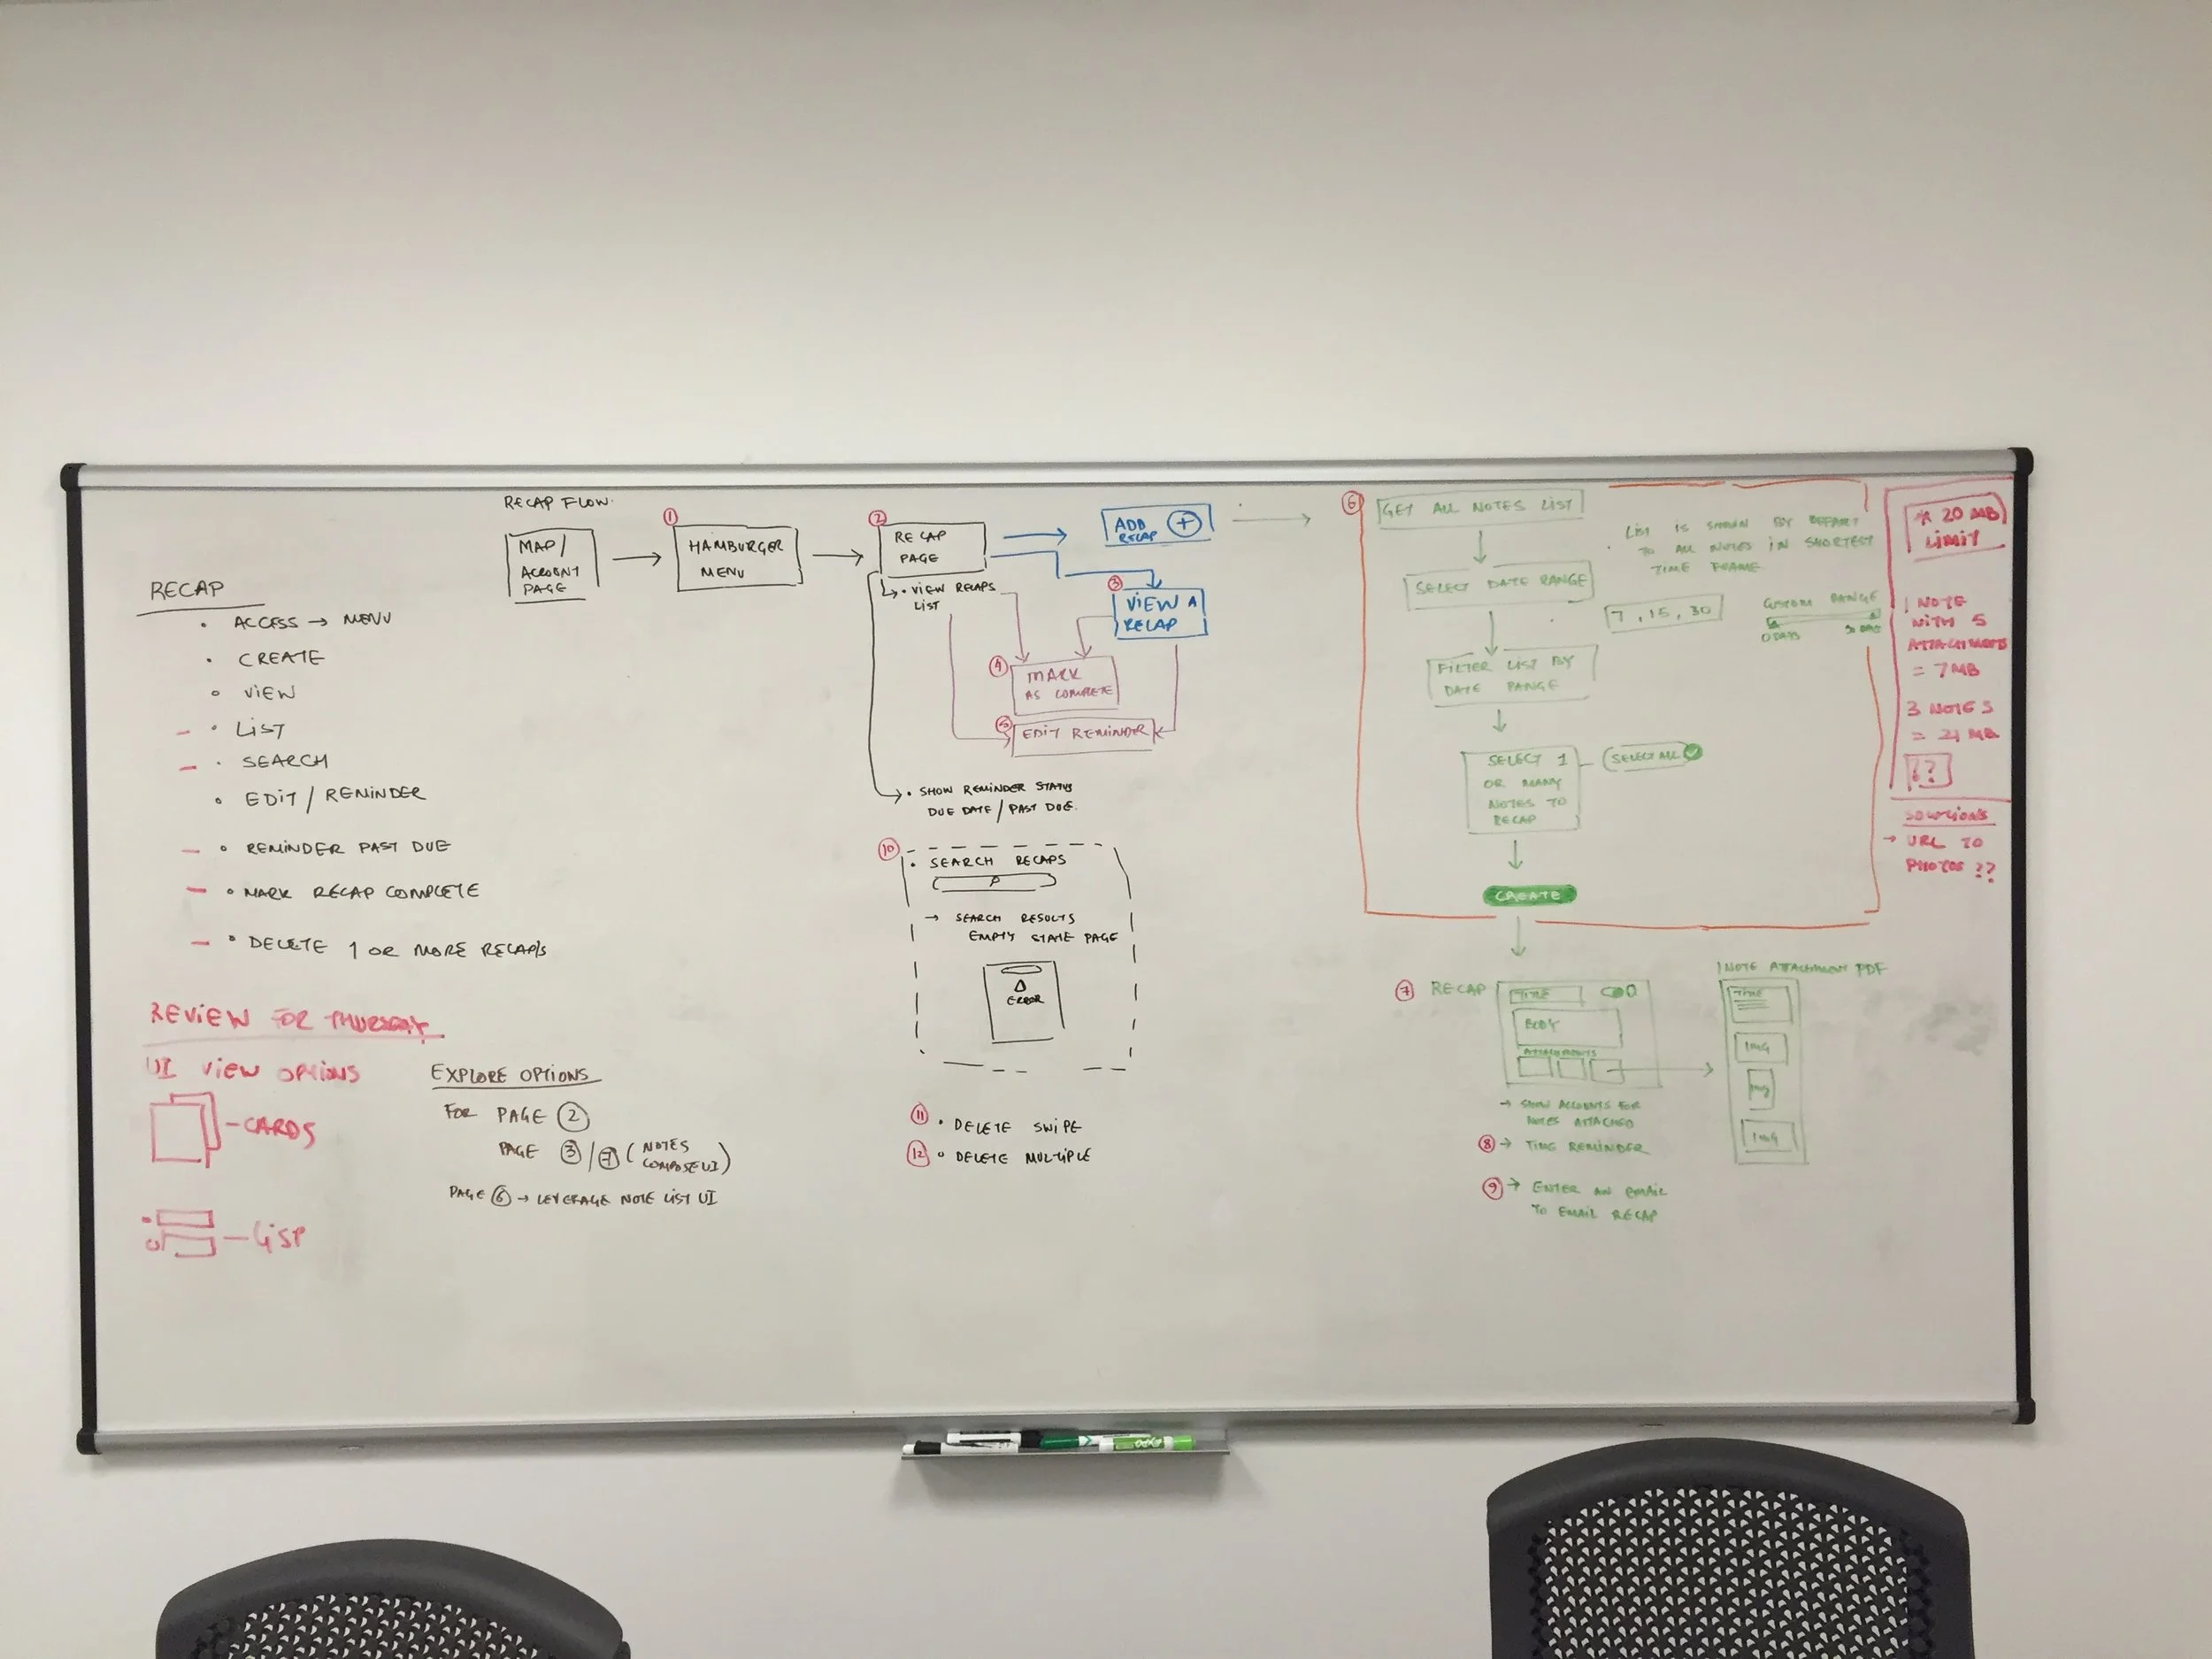 RECAP FLOW.
MAP/
ACCOUNT
PAGE
1
HAMBURGER
MENU
2
RECAP
PAGE
• VIEW RECAPS
LIST
ADD
RECAP +
3
VIEW A
RECAP
4
MARK
AS COMPLETE
5
EDIT REMINDER
• SHOW REMINDER STATUS
DUE DATE / PAST DUE.
10
• SEARCH RECAPS
→ SEARCH RESULTS
EMPTY STATE PAGE
ERROR
11 • DELETE SWIPE
12 • DELETE MULTIPLE
RECAP
• ACCESS → MENU
• CREATE
• VIEW
– • LIST
– • SEARCH
• EDIT / REMINDER
– • REMINDER PAST DUE
– • MARK RECAP COMPLETE
– • DELETE 1 OR MORE RECAP/S
REVIEW FOR THURSDAY
UI VIEW OPTIONS
– CARDS
– LIST
EXPLORE OPTIONS
FOR PAGE 2
PAGE 3 / 7 (NOTES
COMPOSE UI)
PAGE 6 → LEVERAGE NOTE LIST UI
6
GET ALL NOTES LIST
SELECT DATE RANGE
FILTER LIST BY
DATE RANGE
SELECT 1
OR MANY
NOTES TO
RECAP
SELECT ALL
CREATE
• LIST IS SHOWN BY DEFAULT
TO ALL NOTES IN SHORTEST
TIME FRAME
7, 15, 30
CUSTOM RANGE
0 DAYS
30 DAYS
7 RECAP
TITLE
BODY
ATTACHMENTS
→ SHOW ACCOUNTS FOR
NOTES ATTACHED
8 → TIME REMINDER
9 → ENTER AN EMAIL
TO EMAIL RECAP
1 NOTE ATTACHMENT PDF
TITLE
IMG
IMG
IMG
* 20 MB
LIMIT
1 NOTE
WITH 5
ATTACHMENTS
= 7 MB
3 NOTES
= 21 MB
??
SOLUTIONS
→ URL TO
PHOTOS ??
EXPO